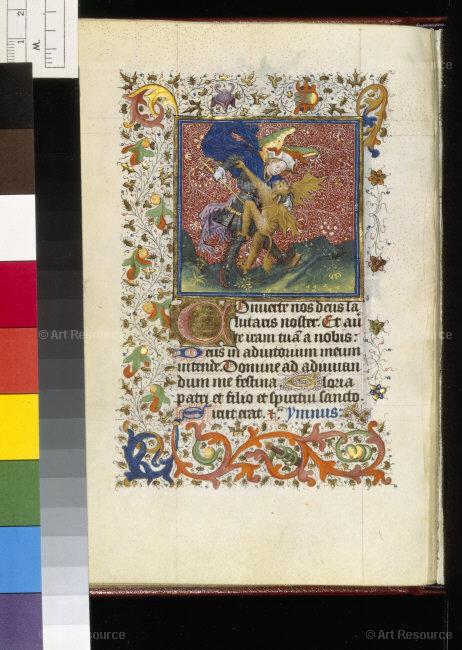 W.
1
2
Conuerte nos deus sa
lutaris noster. Et auer
te iram tuā a nobis:
Deus in adiutorium meum
intende. Domine ad adiuuan
dum me festina. Gloria
patri et filio et spiritui sancto.
Sicut erat. ⁊. Ymnus:
© Art Resource
© Art Resource
© Art Resource
© Art Resource
© Art Resource